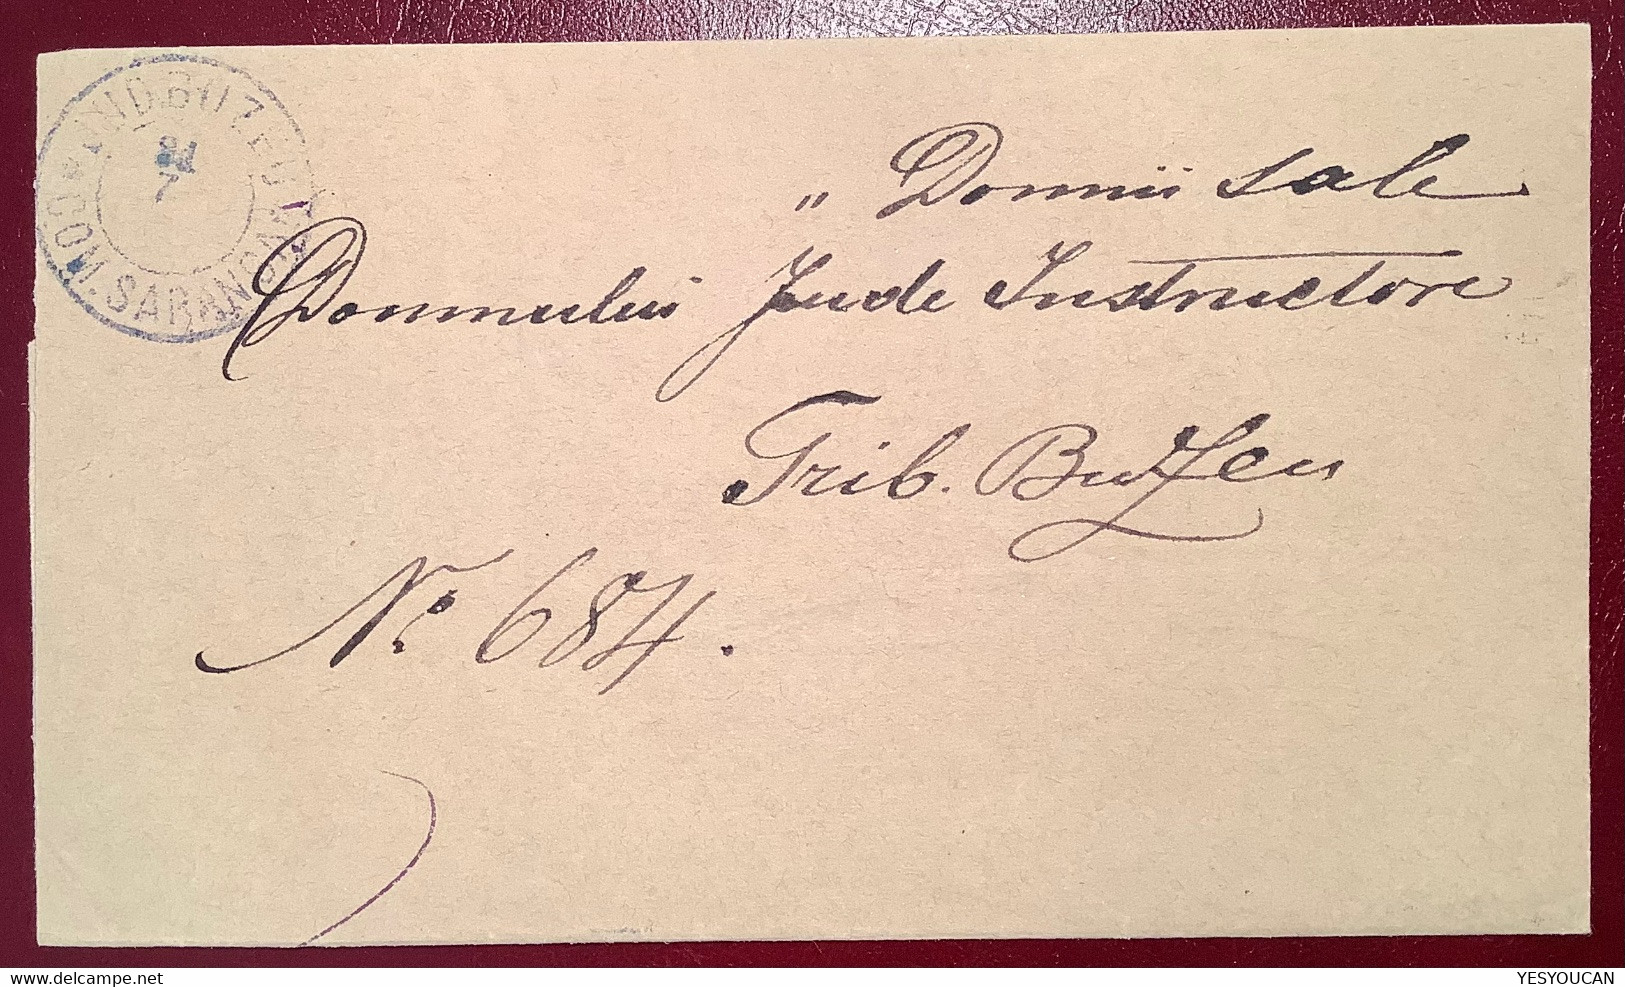 JUD. BUZEU
COM. SARANGA
7
„ Domnii sale
Domnului Jude Instructore
Trib. Buzeu
No. 684.
YESYOUCAN
delcampe.net